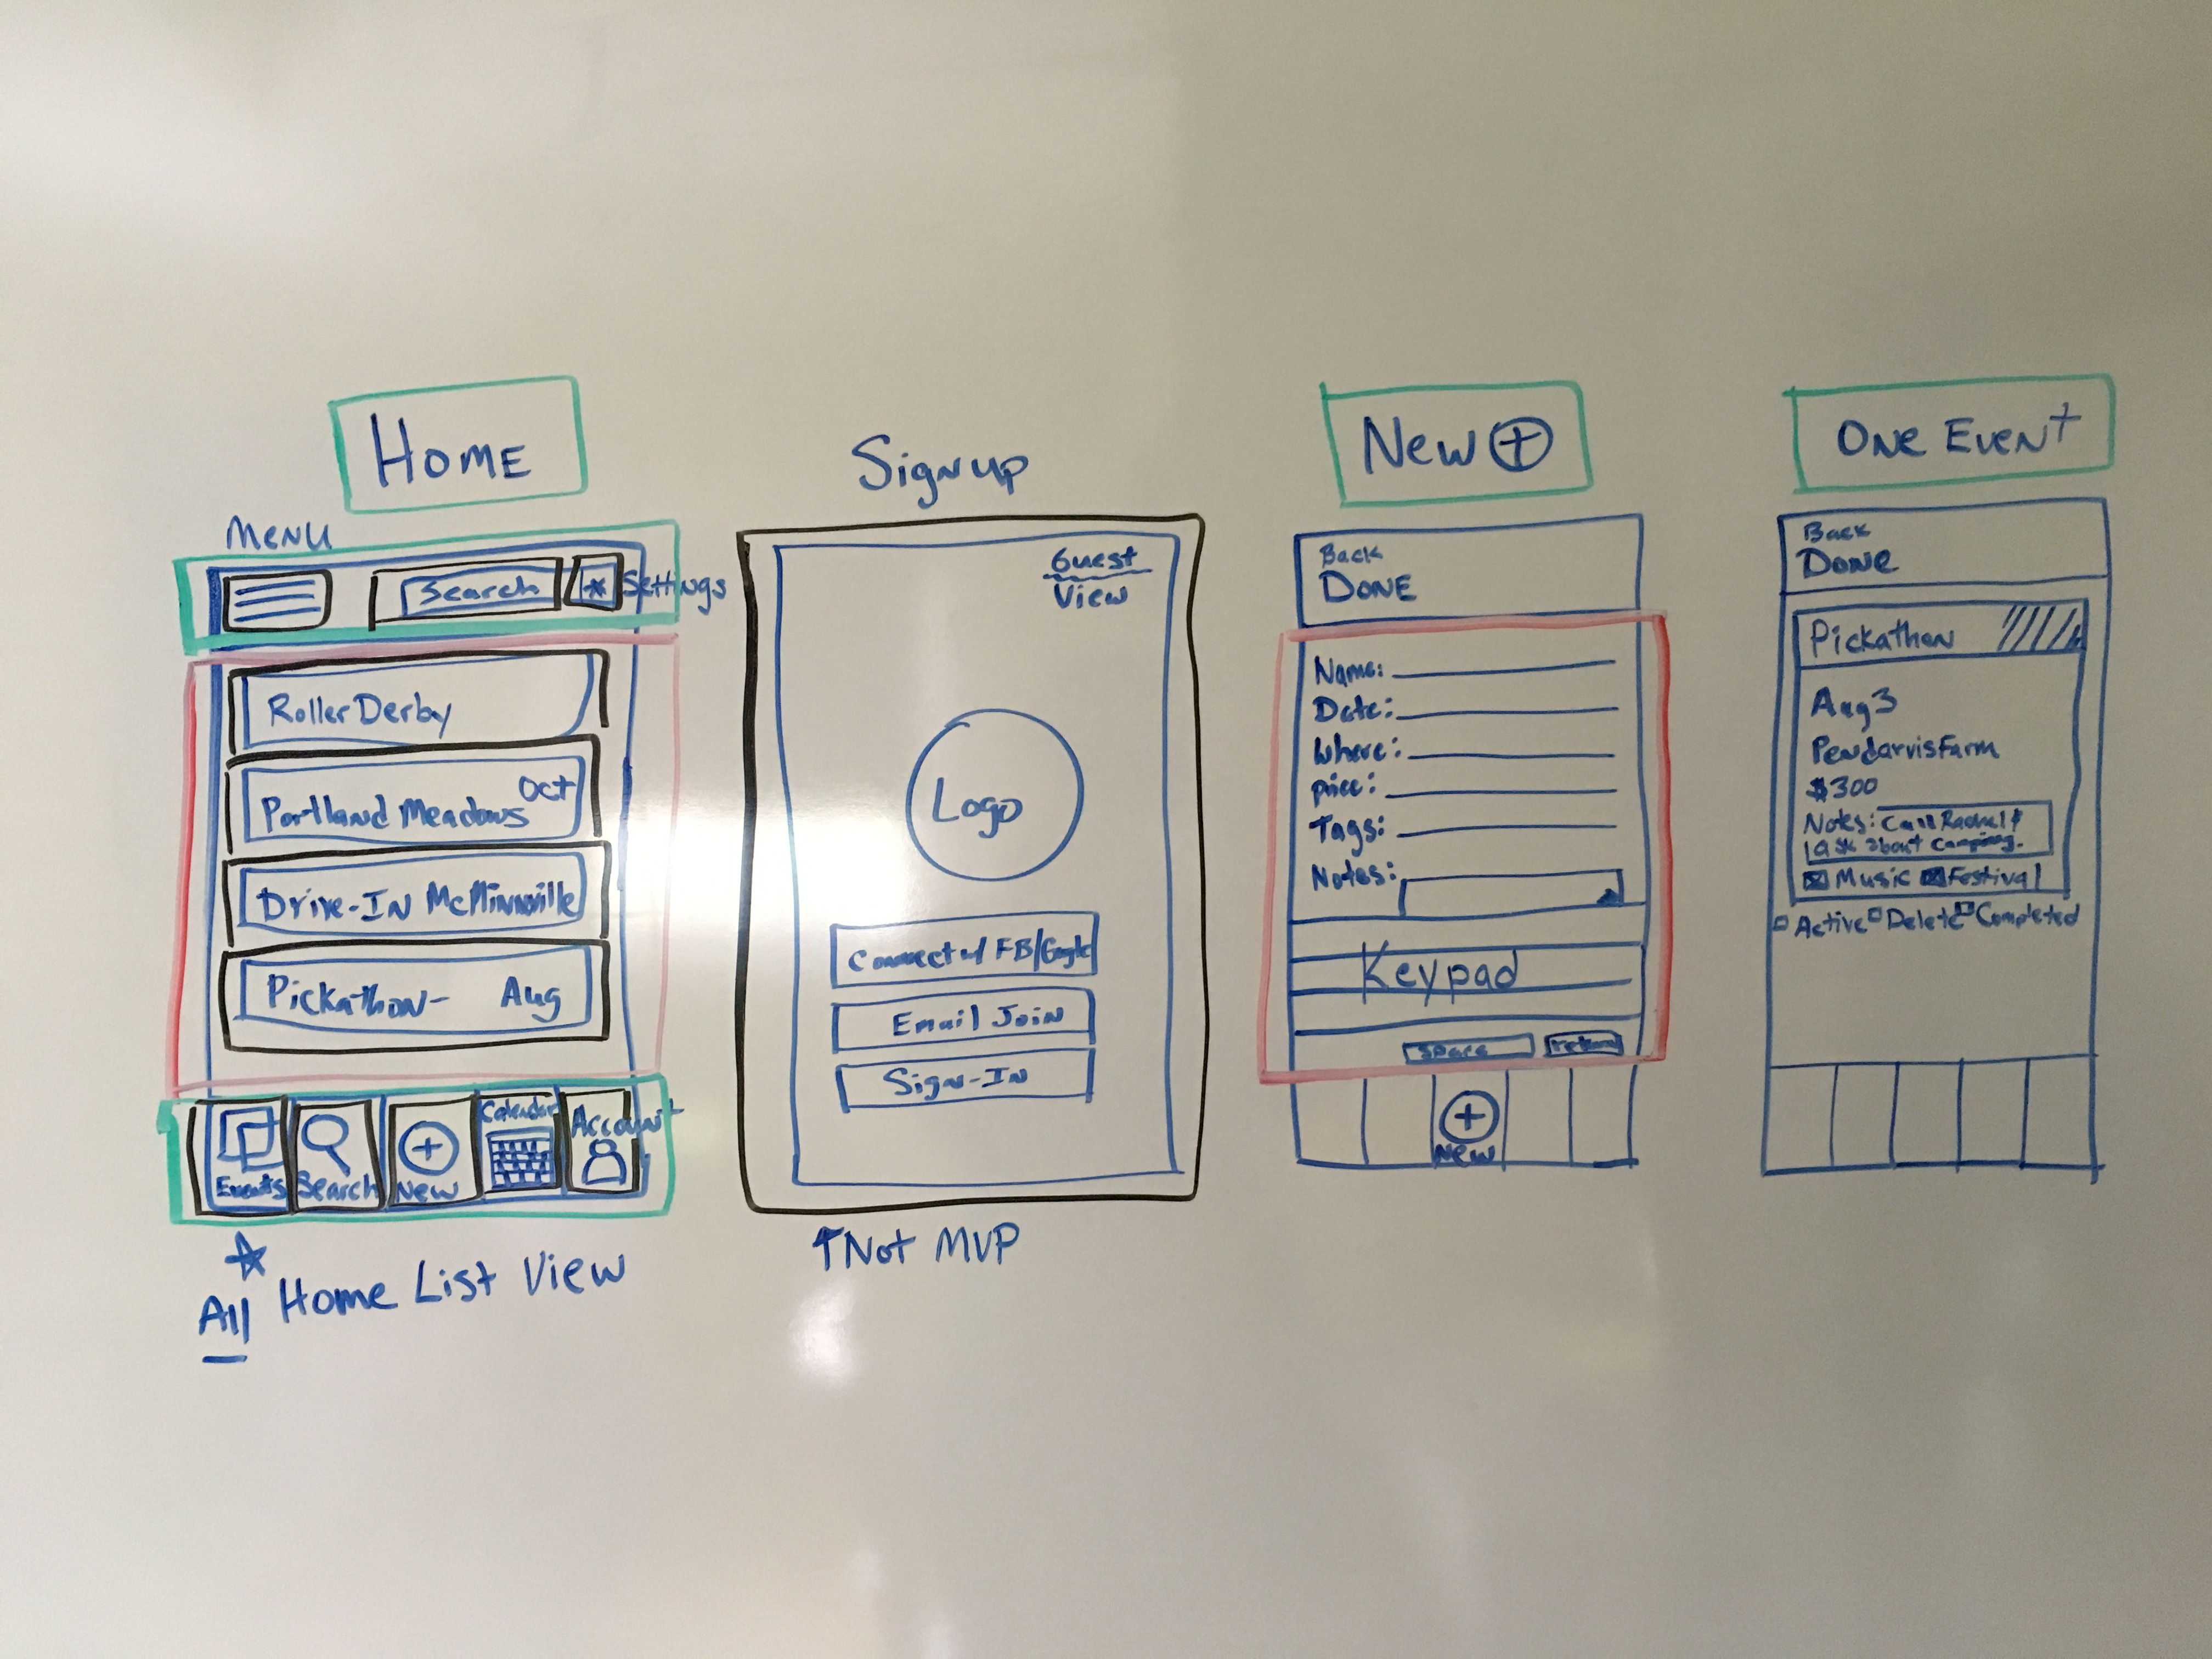 Home
Menu
Search
Settings
Roller Derby
Oct
Portland Meadows
Drive-In McMinnville
Pickathon- Aug
Events
Search
New
Calendar
Account
All Home List View
Signup
Guest
View
Logo
Connect w/ FB/Google
Email Join
Sign-In
↑Not MVP
New +
Back
Done
Name:
Date:
Where:
Price:
Tags:
Notes:
Keypad
space
return
+
New
One Event
Back
Done
Pickathon
Aug 3
Pendarvis Farm
$300
Notes: Call Rachel &
ask about camping.
Music Festival
Active Delete Completed